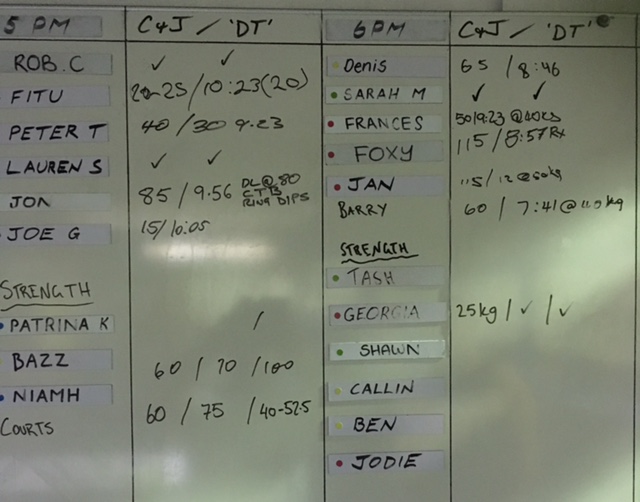 5 PM C&J / 'DT'
ROB.C ✓ ✓
FITU 25/10:23(20)
PETER T 40/30 9:23
LAUREN S ✓ ✓
JON 85/9.56 DL@80 CTB RING DIPS
JOE G 15/10:05
STRENGTH
PATRINA K /
BAZZ 60 / 70 /100
NIAMH 60 / 75 /40-52.5
COURTS
6PM C&J / 'DT'
Denis 65 /8:46
SARAH M ✓ ✓
FRANCES 50/9:23 @40KG
FOXY 115/8:57Rx
JAN 115/12@60kg
BARRY 60 / 7:41@ kg
STRENGTH
TASH
GEORGIA 25kg/✓/✓
SHAWN
CALLIN
BEN
JODIE